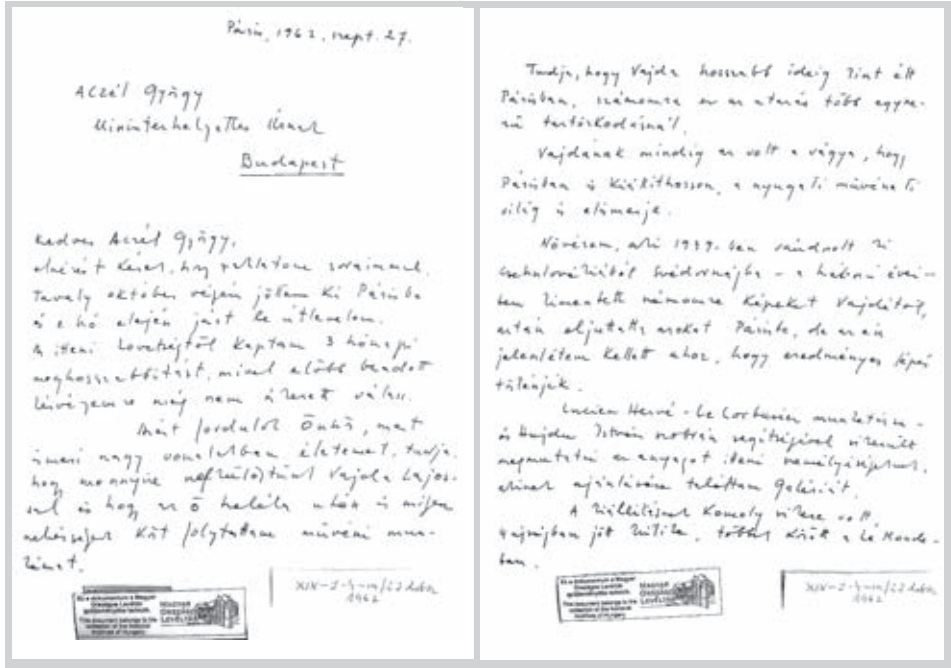 Páris, 1962. szept. 27.
Aczél György
Miniszterhelyettes Úrnak
Budapest
Kedves Aczél György,
elnézést kérek, hogy zaklatom soraimmal.
Tavaly október végén jöttem ki Párisba
és e hó elején járt le útlevelem.
A itteni követségtől kaptam 3 hónapi
meghosszabbítást, mivel előbb beadott
kérvényemre még nem érkezett válasz.
Azért fordulok Önhöz, mert
ismeri nagy vonalakban életemet, tudja,
hogy mennyire Vajda Lajos-
sal és hogy az ő halála után is milyen
nehézségek közt folytattam művészi mun-
kámat.
Ez a dokumentum a Magyar
Országos Levéltár
gyűjteményébe tartozik.
This document belongs to the
collection of the National
Archives of Hungary.
MAGYAR
ORSZÁGOS
LEVÉLTÁR
1962
Tudja, hogy Vajda hosszabb ideig kint élt
Párisban, számomra ez az utazás több egysze-
rű tartózkodásnál.
Vajdának mindig az volt a vágya, hogy
Párisban is kiállíthasson, a nyugati művészeti
világ is elismerje.
Nővérem, aki 1939-ben vándorolt ki
Csehszlovákiából Svédországba - a háború évei-
ben kimentett számomra képeket Vajdától,
aztán eljuttatta azokat Párisba, de az én
jelenlétem kellett ahoz, hogy eredményes lépés
történjék.
Lucien Hervé - Le Corbusier munkatársa -
és Hajdu István szobrász segítségével sikerült
megmutatni az anyagot itteni személyiségeknek,
akinek ajánlására találtam galériát.
A kiállításnak komoly sikere volt,
újságban jött kritika, többek közt a Le Monde-
ban.
Ez a dokumentum a Magyar
Országos Levéltár
gyűjteményébe tartozik.
This document belongs to the
collection of the National
Archives of Hungary.
MAGYAR
ORSZÁGOS
LEVÉLTÁR
1962